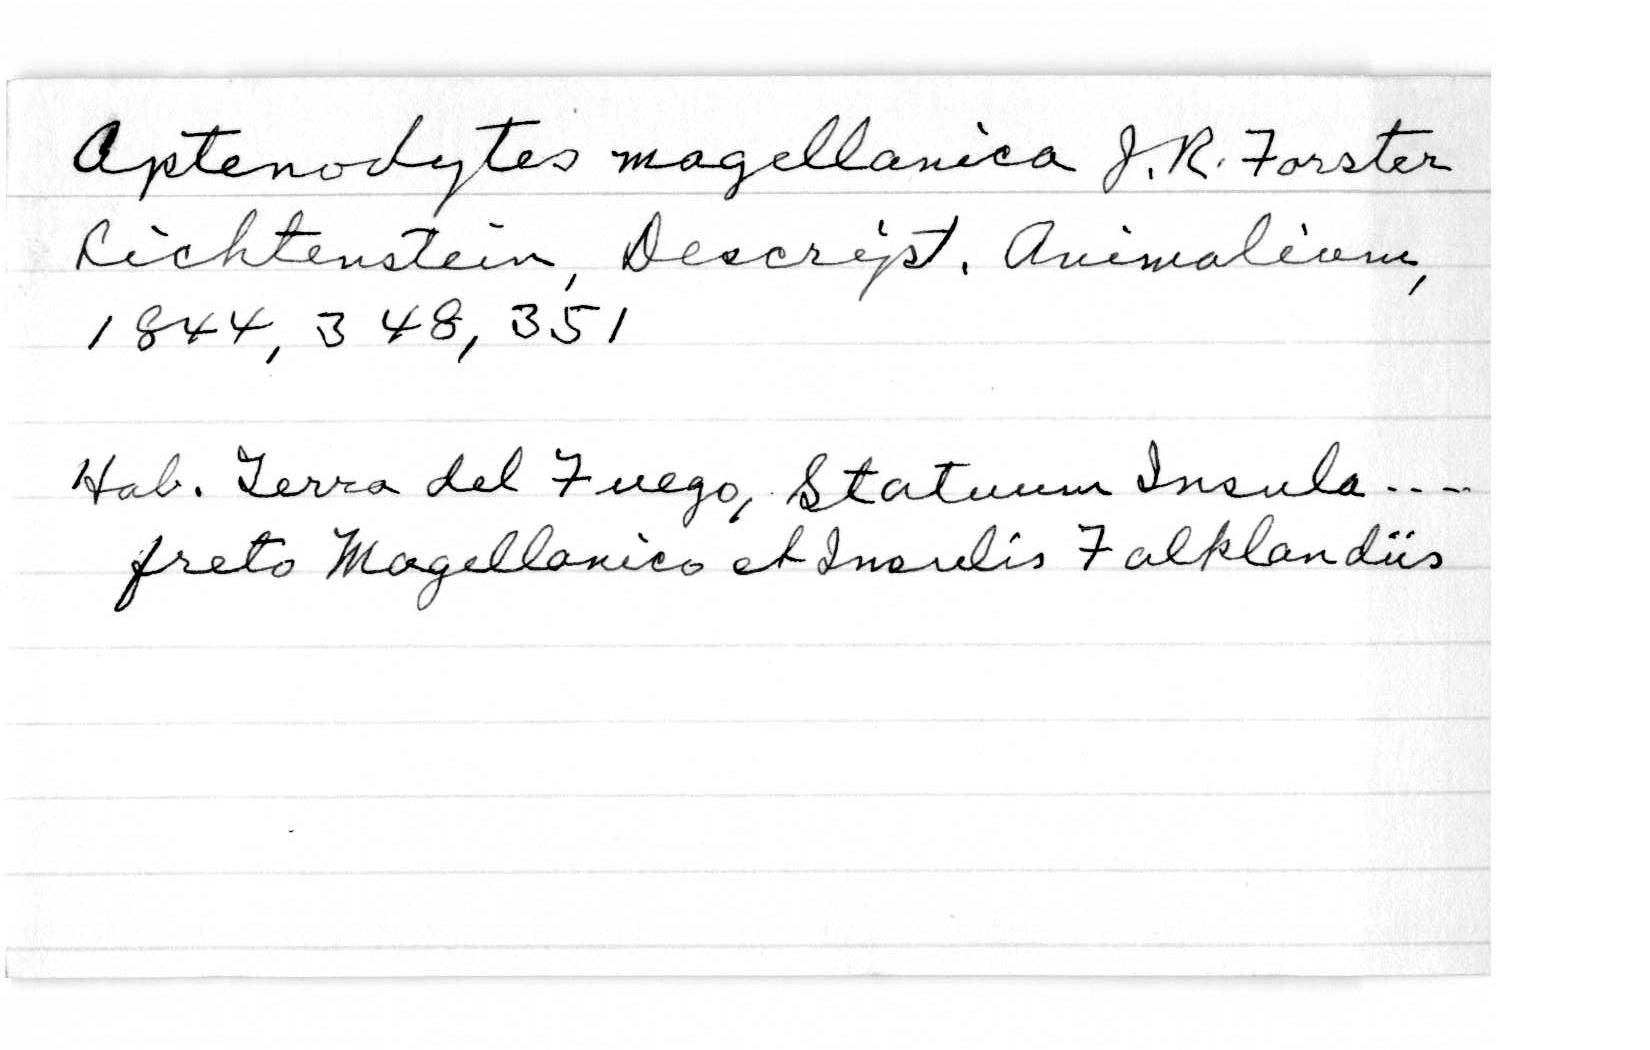 Aptenodytes magellanica J.R. Forster
Lichtenstein, Descript. Animalium,
1844, 348, 351
Hab. Terra del Fuego, Statuum Insula ....
freto Magellanico et Insulis Falklandiis